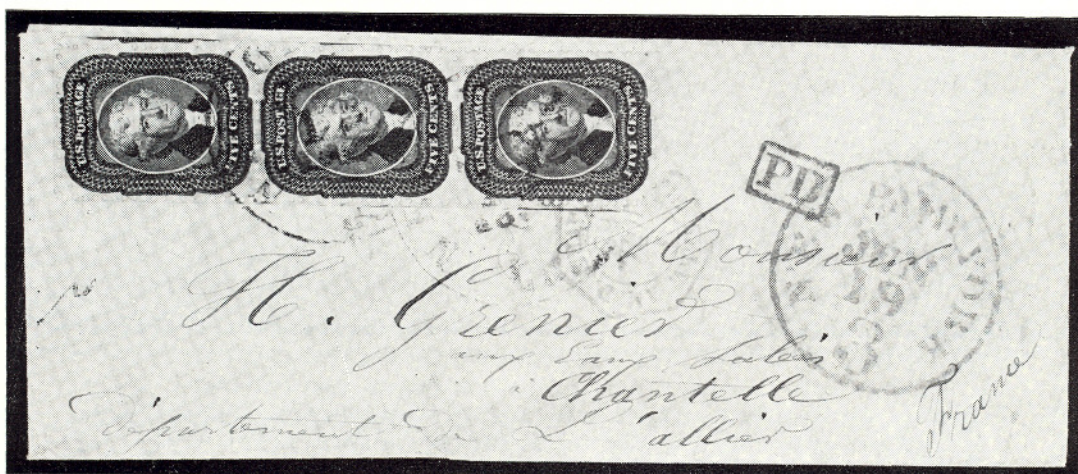 U.S. POSTAGE FIVE CENTS
U.S. POSTAGE FIVE CENTS
U.S. POSTAGE FIVE CENTS
PD
NEW PAID YORK
19
Monsieur
H. Grenier
aux Eaux
à Chantelle
département de L'allier
France